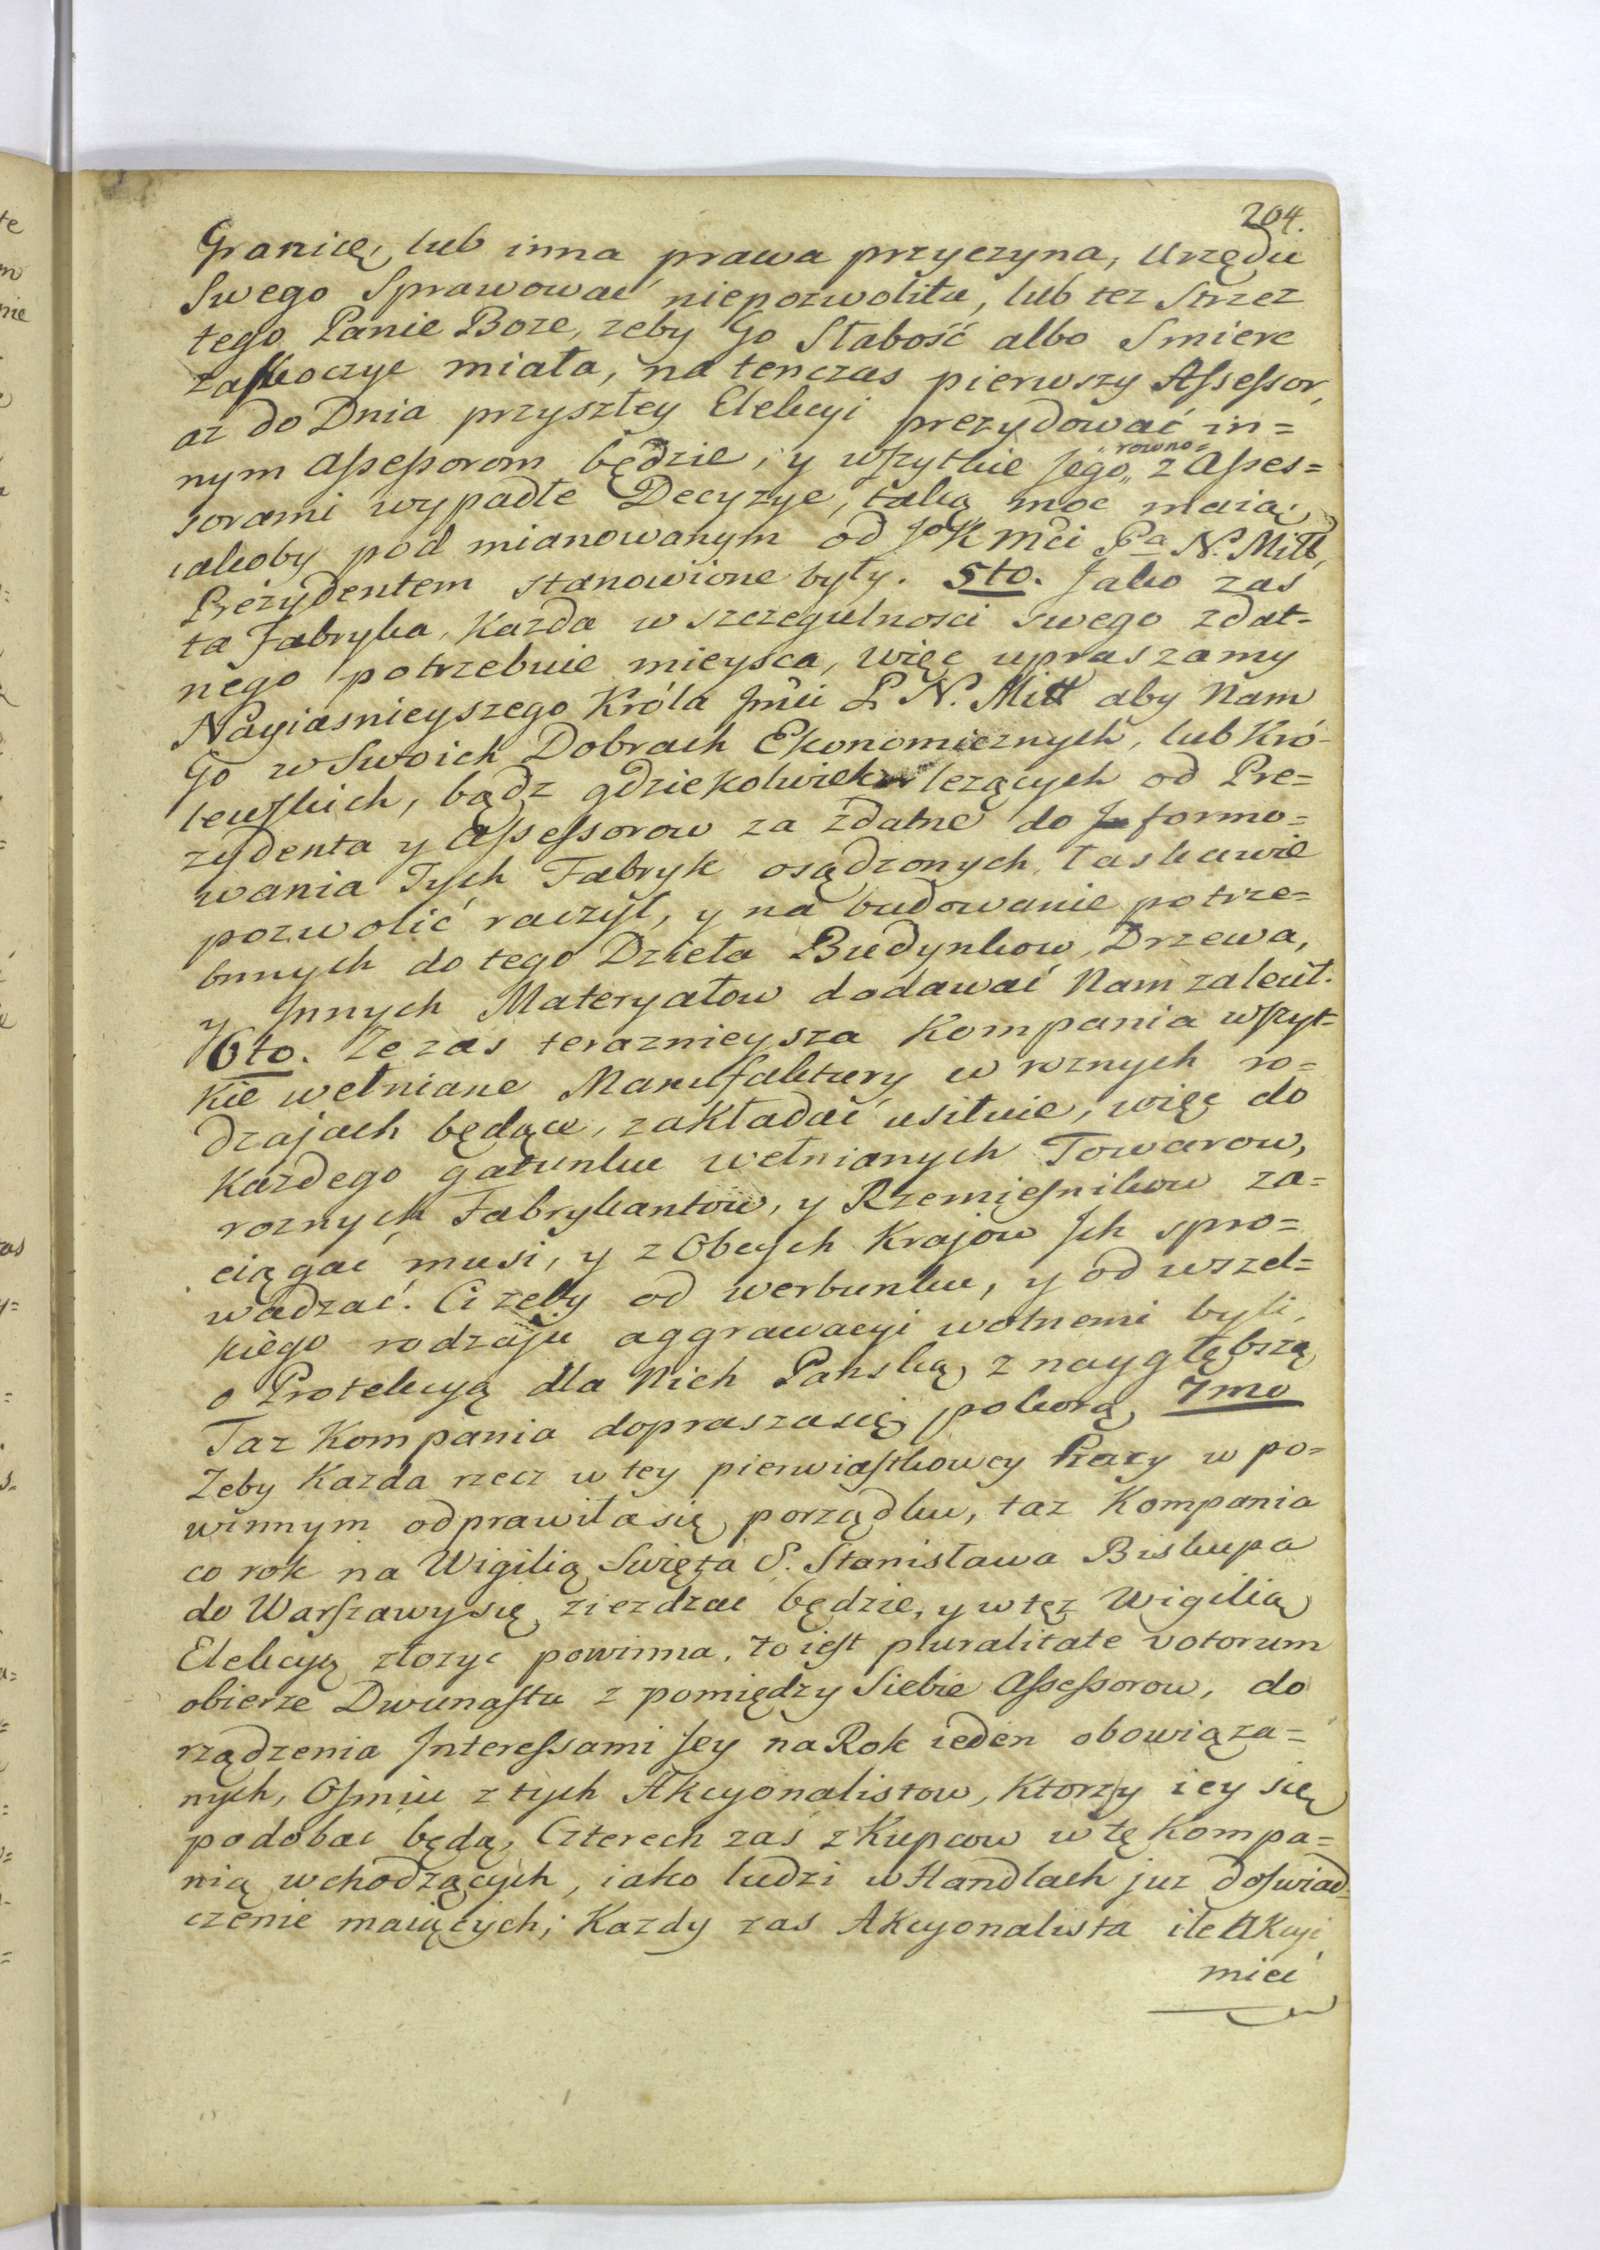 204.
Granicę, lub inna prawa przyczyna, Urzędu
Swego Sprawować niepozwoliła, lub tez Strzez
tego Panie Boze, zeby Go Słabość albo Smierc
zaskoczyc miała, na tenczas pierwszy Assessor,
az do Dnia przyszłey Elekcyi prezydować in=
nym Assessorom będzie, y wszytkie Jego „ rowno= z Asses=
sorami wypadłe Decyzye, taką moc maią,
iakoby pod mianowanym od JoK Mci Pa N. Mił
Prezydentem stanowione były. 5to. Jako zaś
ta Fabryka, Kazda w szczegulnosci swego zdat=
nego potrzebuie mieysca, więc upraszamy
Nayiasnieyszego Króla Jmci P. N. Mił aby Nam
Go w Swoich Dobrach Ekonomicznych, lub Kró-
lewskich, bądz gdziekolwiek lezących od Pre=
zydenta y Assessorow za zdatne do formo=
wania Tych Fabryk osądzonych, łaskawie
pozwolić raczył, y na budowanie potrze=
bnnych do tego Dzieła Budynkow, Drzewa,
y Jnnych Materyałow dodawać Nam zalecił.
6to. Ze zas teraznieysza Kompania wszyt=
kie wełniane Manufaktury w roznych ro=
dzajach będące, zakładać usiłuie, więc do
Kazdego gatunku wełnianych Towarow,
roznych Fabrykantow, y Rzemiesnikow za=
ciągać musi, y z Obcych Krajow Jch spro=
wadzać. Ci zeby od werbunku, y od wszel=
kiego rodzaju aggrawacyi wolnemi byli,
o Protekcyą dla Nich Pańską z naygłębszą
Taz Kompania dopraszasię pokorą 7mo
Zeby Kazda rzecz w tey pierwiastkowey Pracy w po=
winnym odprawiłasię porządku, taz Kompania
co rok na Wigilią Swięta S. Stanisława Biskupa
do Warszawy się ziezdzac będzie, y w tęz Wigilią
Elekcyą złozyc powinna, to iest pluralitate votorum
obierze Dwunastu z pomiędzy Siebie Assessorow, do
rządzenia Jnteressami Jey na Rok ieden obowiąza=
nych, Osmiu z tych Akcyonalistow, Ktorzy iey się
podobac będą, Czterech zaś z Kupcow w tę Kompa=
nią wchodzących, iako ludzi w Handlach juz doswiad=
czenie maiących; Kazdy zas Akcyonalista ile Akcyi
mieć